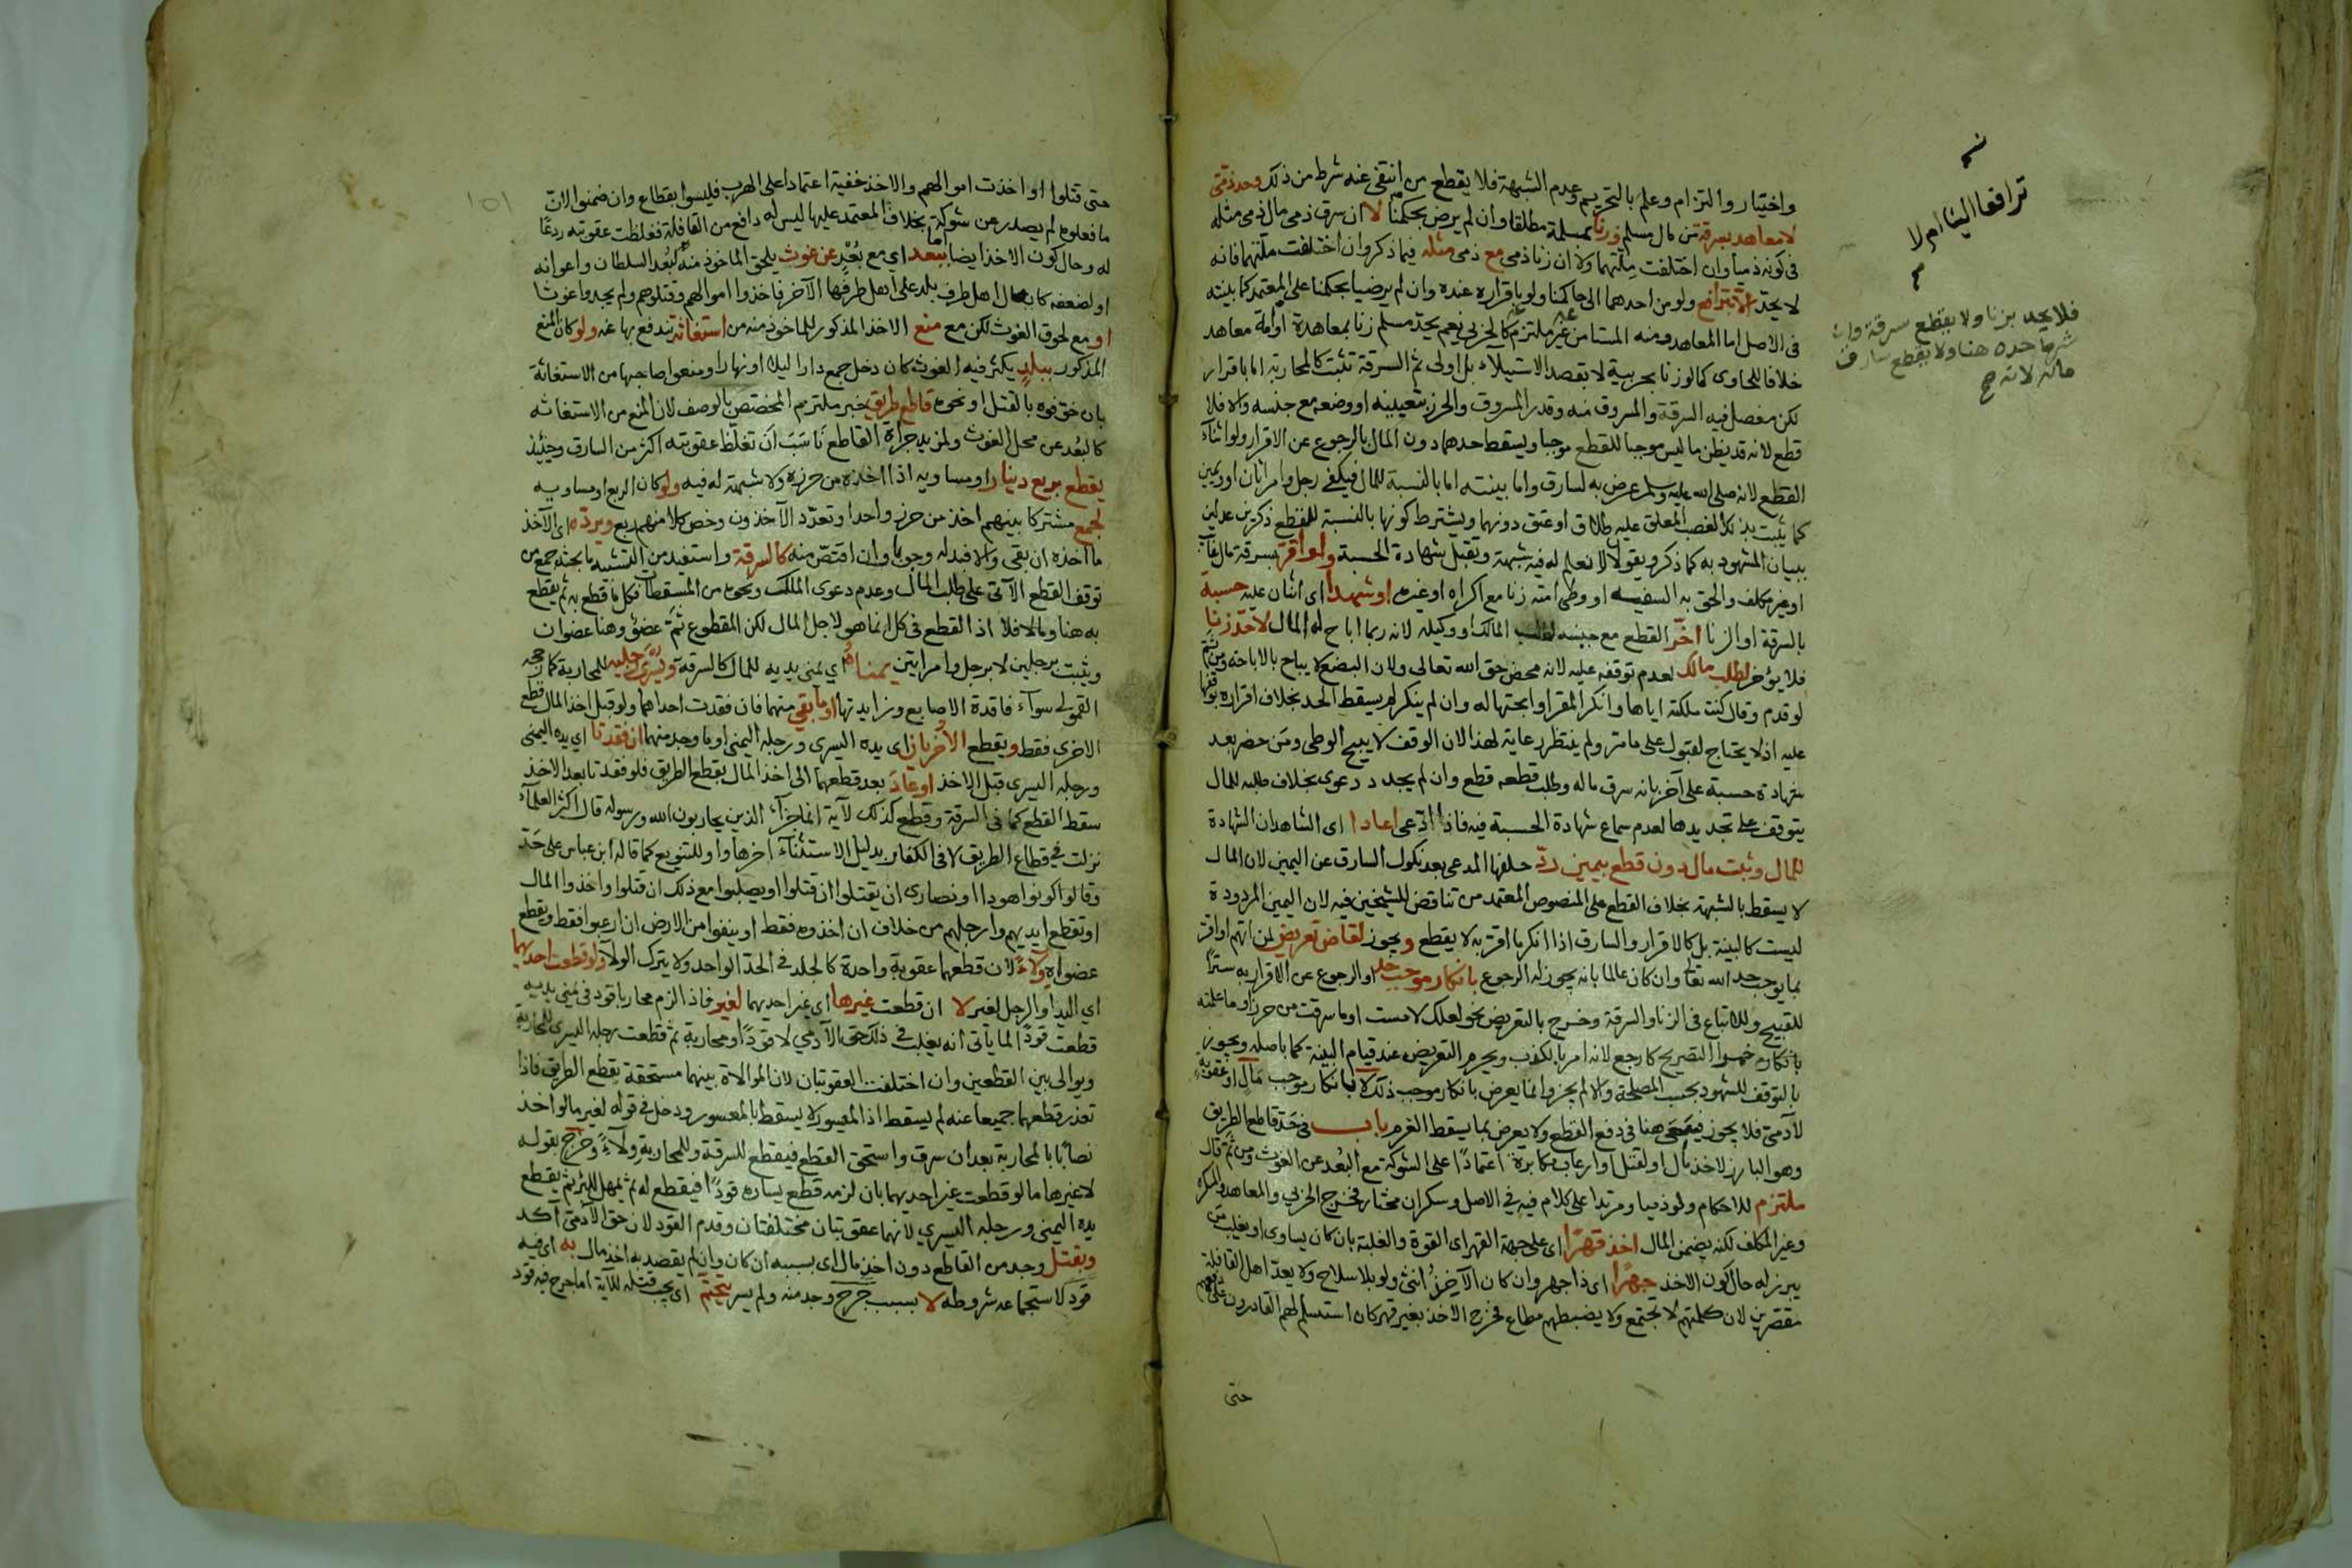 واختيار والتزام وعلم بالتحريم وعدم الشبهة فلا يقطع من انتفى عنه شرط من ذلك وحد ذمي
لا معاهد بسرقة من مال مسلم وزنا بمسلمة مطلقا وان لم يرض بحكمنا لا ان سرق ذمي مال ذمي مثله
في كونه ذميا وان اختلفت ملتهما ولا ان زنا ذمي مع ذمي مثله فيما ذكر وان اختلفت ملتهما فانه
لا يحد الا بترافع ولو من احدهما الى حاكمنا ولو باقراره عنده وان لم يرضيا بحكمنا على المعتمد كما بينته
في الاصل اما المعاهد ومنه المستامن غير ملتزم كالحربي نعم يحد مسلم زنا بمعاهدة او امة معاهد
خلافا للحاوي كما لو زنا بحربية لا بقصد الاستيلاء بل اولى ثم السرقة تثبت كالمحاربة اما باقرار
لكن مفصل فيه السرقة والمسروق منه وقدر المسروق والحرز بتعيينه او وصفه مع جنسه والا فلا
قطع لانه قد يظن ما ليس موجبا للقطع موجبا ويسقط حدهما دون المال بالرجوع عن الاقرار ولو اثناء
القطع لانه صلى الله عليه وسلم عرض به لسارق واما ببينته اما بالنسبة للمال فيكفي رجل وامراتان او ويمين
كما يثبت بذلك الغصب المعلق عليه طلاق او عتق دونهما ويشترط كونها بالنسبة للقطع ذكرين عدلين
ببيان المشهود به كما ذكر ويقولا لا نعلم له فيه شبهة وتقبل شهادة الحسبة ولو اقر بسرقة مال غائب
او غير مكلف والحق به السفيه او وطئ امته زنا مع اكراه او غيره او شهدا اي اثنان عليه حسبة
بالسرقة او الزنا اخر القطع مع حبسه لطلب المالك او وكيله لانه ربما اباح له المال لا حد زنا
فلا يؤخر لطلب مالك لعدم توقفه عليه لانه محض حق الله تعالى ولان البضع لا يباح بالاباحة ومن ثم
لو قدم وقال كنت ملكته اياها وانكر المقر او ابحتها له وان لم ينكر لم يسقط الحد بخلاف اقراره بوقفها
عليه اذ لا يحتاج لقبول على ما مر ولم ينتظر رعاية لهذا لان الوقف لا يبيح الوطي ومن حضر بعد
شهادة حسبة على آخر بانه سرق ماله وطلب قطعه قطع وان لم يجدد دعوى بخلاف طلبه للمال
يتوقف على تجديدها لعدم سماع شهادة الحسبة فيه فاذا ادعى اعادا اي الشاهدان الشهادة
للمال وثبت مال دون قطع بيمين رد حلفها المدعي بعد نكول السارق عن اليمين لان المال
لا يسقط بالشبهة بخلاف القطع على المنصوص المعتمد من تناقض للشيخين فيه لان اليمين المردودة
ليست كالبينة بل كالاقرار والسارق اذا انكر ما اقر به لا يقطع ويجوز لقاض تعريض لمن اتهم او اقر
بما يوجب حد الله تعالى وان كان عالما بانه يجوز له الرجوع بانكار موجب حد او الرجوع عن الاقرار به سترا
للقبيح وللاتباع في الزنا والسرقة وخرج بالتعريض نحو لعلك لامست او ما سرقت من حرز او ما علمته
بانكاره خمرا التصريح كارجع لانه امر بالكذب ويحرم التعريض عند قيام البينة كما باصله ويجوز
بالتوقف للشهود بحسب المصلحة والا لم يجز وانما يعرض بانكار موجب ذلك لا بانكار موجب مال او عقوبة
لآدمي فلا يجوز فيعمى هنا في دفع القطع ولا يعرض بما يسقط الغرم باب في حد قاطع الطريق
وهو البارز لاخذ مال او لقتل او ارعاب مكابرة اعتمادا على الشوكة مع البعد عن الغوث ومن ثم قال
ملتزم للاحكام ولو ذميا ومرتدا على كلام فيه في الاصل وسكران مختار فخرج الحربي والمعاهد والمكره
وغير المكلف لكنه يضمن المال اخذ قهرا اي على جهة القهر اي القوة والغلبة بان كان يساوي او يغلب من
يبرز له حال كون الاخذ جهرا اي ذا جهر وان كان الآخذ انثى ولو بلا سلاح ولا يعد اهل القافلة
مقصرين لان كلمتهم لا تجتمع ولا يضبطهم مطاع فخرج الاخذ بغير قهر كان استسلم لهم القادرون على دفعهم
حتى
ترافعا الينا ام لا
فلا يحد بزنا ولا يقطع سرقة وان
شرط حده هنا ولا يقطع سارق
ماله لانه صح
١٥١
حتى قتلوا او اخذت اموالهم والاخذ خفية اعتمادا على الهرب فليسوا بقطاع وان ضمنوا لان
ما فعلوه لم يصدر عن شوكة بخلاف المعتمد عليها ليس له دافع من القافلة فغلظت عقوبته ردعا
له وحال كون الاخذ ايضا ببعد اي مع بعد عن غوث يلحق الماخوذ منه لبعد السلطان واعوانه
او لضعفه كان صال اهل طرف بلد على اهل طرفها الآخر فاخذوا اموالهم وقتلوهم ولم يجدوا غوثا
او مع لحوق الغوث لكن مع منع الاخذ المذكور للماخوذ منه من استغاثة يندفع بها عنه ولو كان المنع
المذكور ببلد يكثر فيه الغوث كان دخل جمع دارا ليلا او نهارا ومنعوا صاحبها من الاستغاثة
بان خوفوه بالقتل او نحوه قاطع طريق خبر ملتزم المختص بالوصف لان المنع من الاستغاثه
كالبعد عن محل الغوث ولمزيد جراءة القاطع ناسب ان تغلظ عقوبته اكثر من السارق وحينئذ
يقطع بربع دينار او مساويه اذا اخذه من حرزه ولا شبهة له فيه ولو كان الربع او مساويه
لجمع مشتركا بينهم اخذ من حرز واحد او تعدد الآخذون وخص كلا منهم ربع ويرده اي الآخذ
ما اخذه ان بقي والا فبدله وجوبا وان اقتص منه كالسرقة واستفيد من التشبيه ما بحثه جمع من
توقف القطع الآتي على طلب المال وعدم دعوى الملك ونحوه من المسقطات فكل ما قطع به ثم يقطع
به هنا وما لا فلا اذ القطع في كل انما هو لاجل المال لكن المقطوع ثم عضو وهنا عضوان
ويثبت برجلين لا برجل وامراتين يمناه اي يمنى يديه للمال كالسرقة ويسرى رجليه للمحاربة كما رجحه
القمولي سواء فاقدة الاصابع وزايدتها او ما بقي منهما فان فقدت احداهما ولو قبل اخذ المال قطع
الاخرى فقط ويقطع الاخريان اي يده اليسرى ورجله اليمنى او ما وجد منهما ان فقدتا اي يده اليمنى
ورجله اليسرى قبل الاخذ او عاد بعد قطعهما الى اخذ المال بقطع الطريق فلو فقدتا بعد الاخذ
سقط القطع كما في السرقة وقطع كذلك لآية انما جزاء الذين يحاربون الله ورسوله قال اكثر العلماء
نزلت في قطاع الطريق لا في الكفار بدليل الاستثناء آخرها واو للتنويع كما قاله ابن عباس على حد
وقالوا كونوا هودا او نصارى ان يقتلوا ان قتلوا او يصلبوا مع ذلك ان قتلوا واخذوا المال
او تقطع ايديهم وارجلهم من خلاف ان اخذوه فقط او ينفوا من الارض ان ارعبوا فقط ويقطع
عضواه ولاء لان قطعهما عقوبة واحدة كالجلد في الحد الواحد ولا يترك الولاء ولو قطعت احديهما
اي اليد او الرجل لغير لا ان قطعت غيرها اي غير احديهما لغير فاذا الزم محاربا قود في يمنى يديه
قطعت قودا لما ياتي انه يغلب في ذلك حق الآدمي لا قودا ومحاربة ثم قطعت رجله اليسرى للمحاربة
ويوالى بين القطعين وان اختلفت العقوبتان لان الموالاة بينهما مستحقة بقطع الطريق فاذا
تعذر قطعهما جميعا عنه لم يسقط اذ الميسور لا يسقط بالمعسور ودخل في قوله لغير ما لو اخذ
نصابا بالمحاربة بعد ان سرق واستحق القطع فيقطع للسرقة وللمحاربة ولاء وخرج بقوله
لا غيرها ما لو قطعت غير احديهما بان لزمه قطع يساره قودا فيقطع له ثم يمهل للبرء ثم يقطع
يده اليمنى ورجله اليسرى لانهما عقوبتان مختلفتان وقدم القود لان حق الآدمي آكد
وبقتل وجد من القاطع دون اخذ مال اي بسببه ان كان وان لم يقصد به اخذ مال به اي فيه
قود لاستجماعه شروطه لا بسبب جرح وجد منه ولم يسر يتحتم اي يجب قتله للآية اما جرح فيه قود